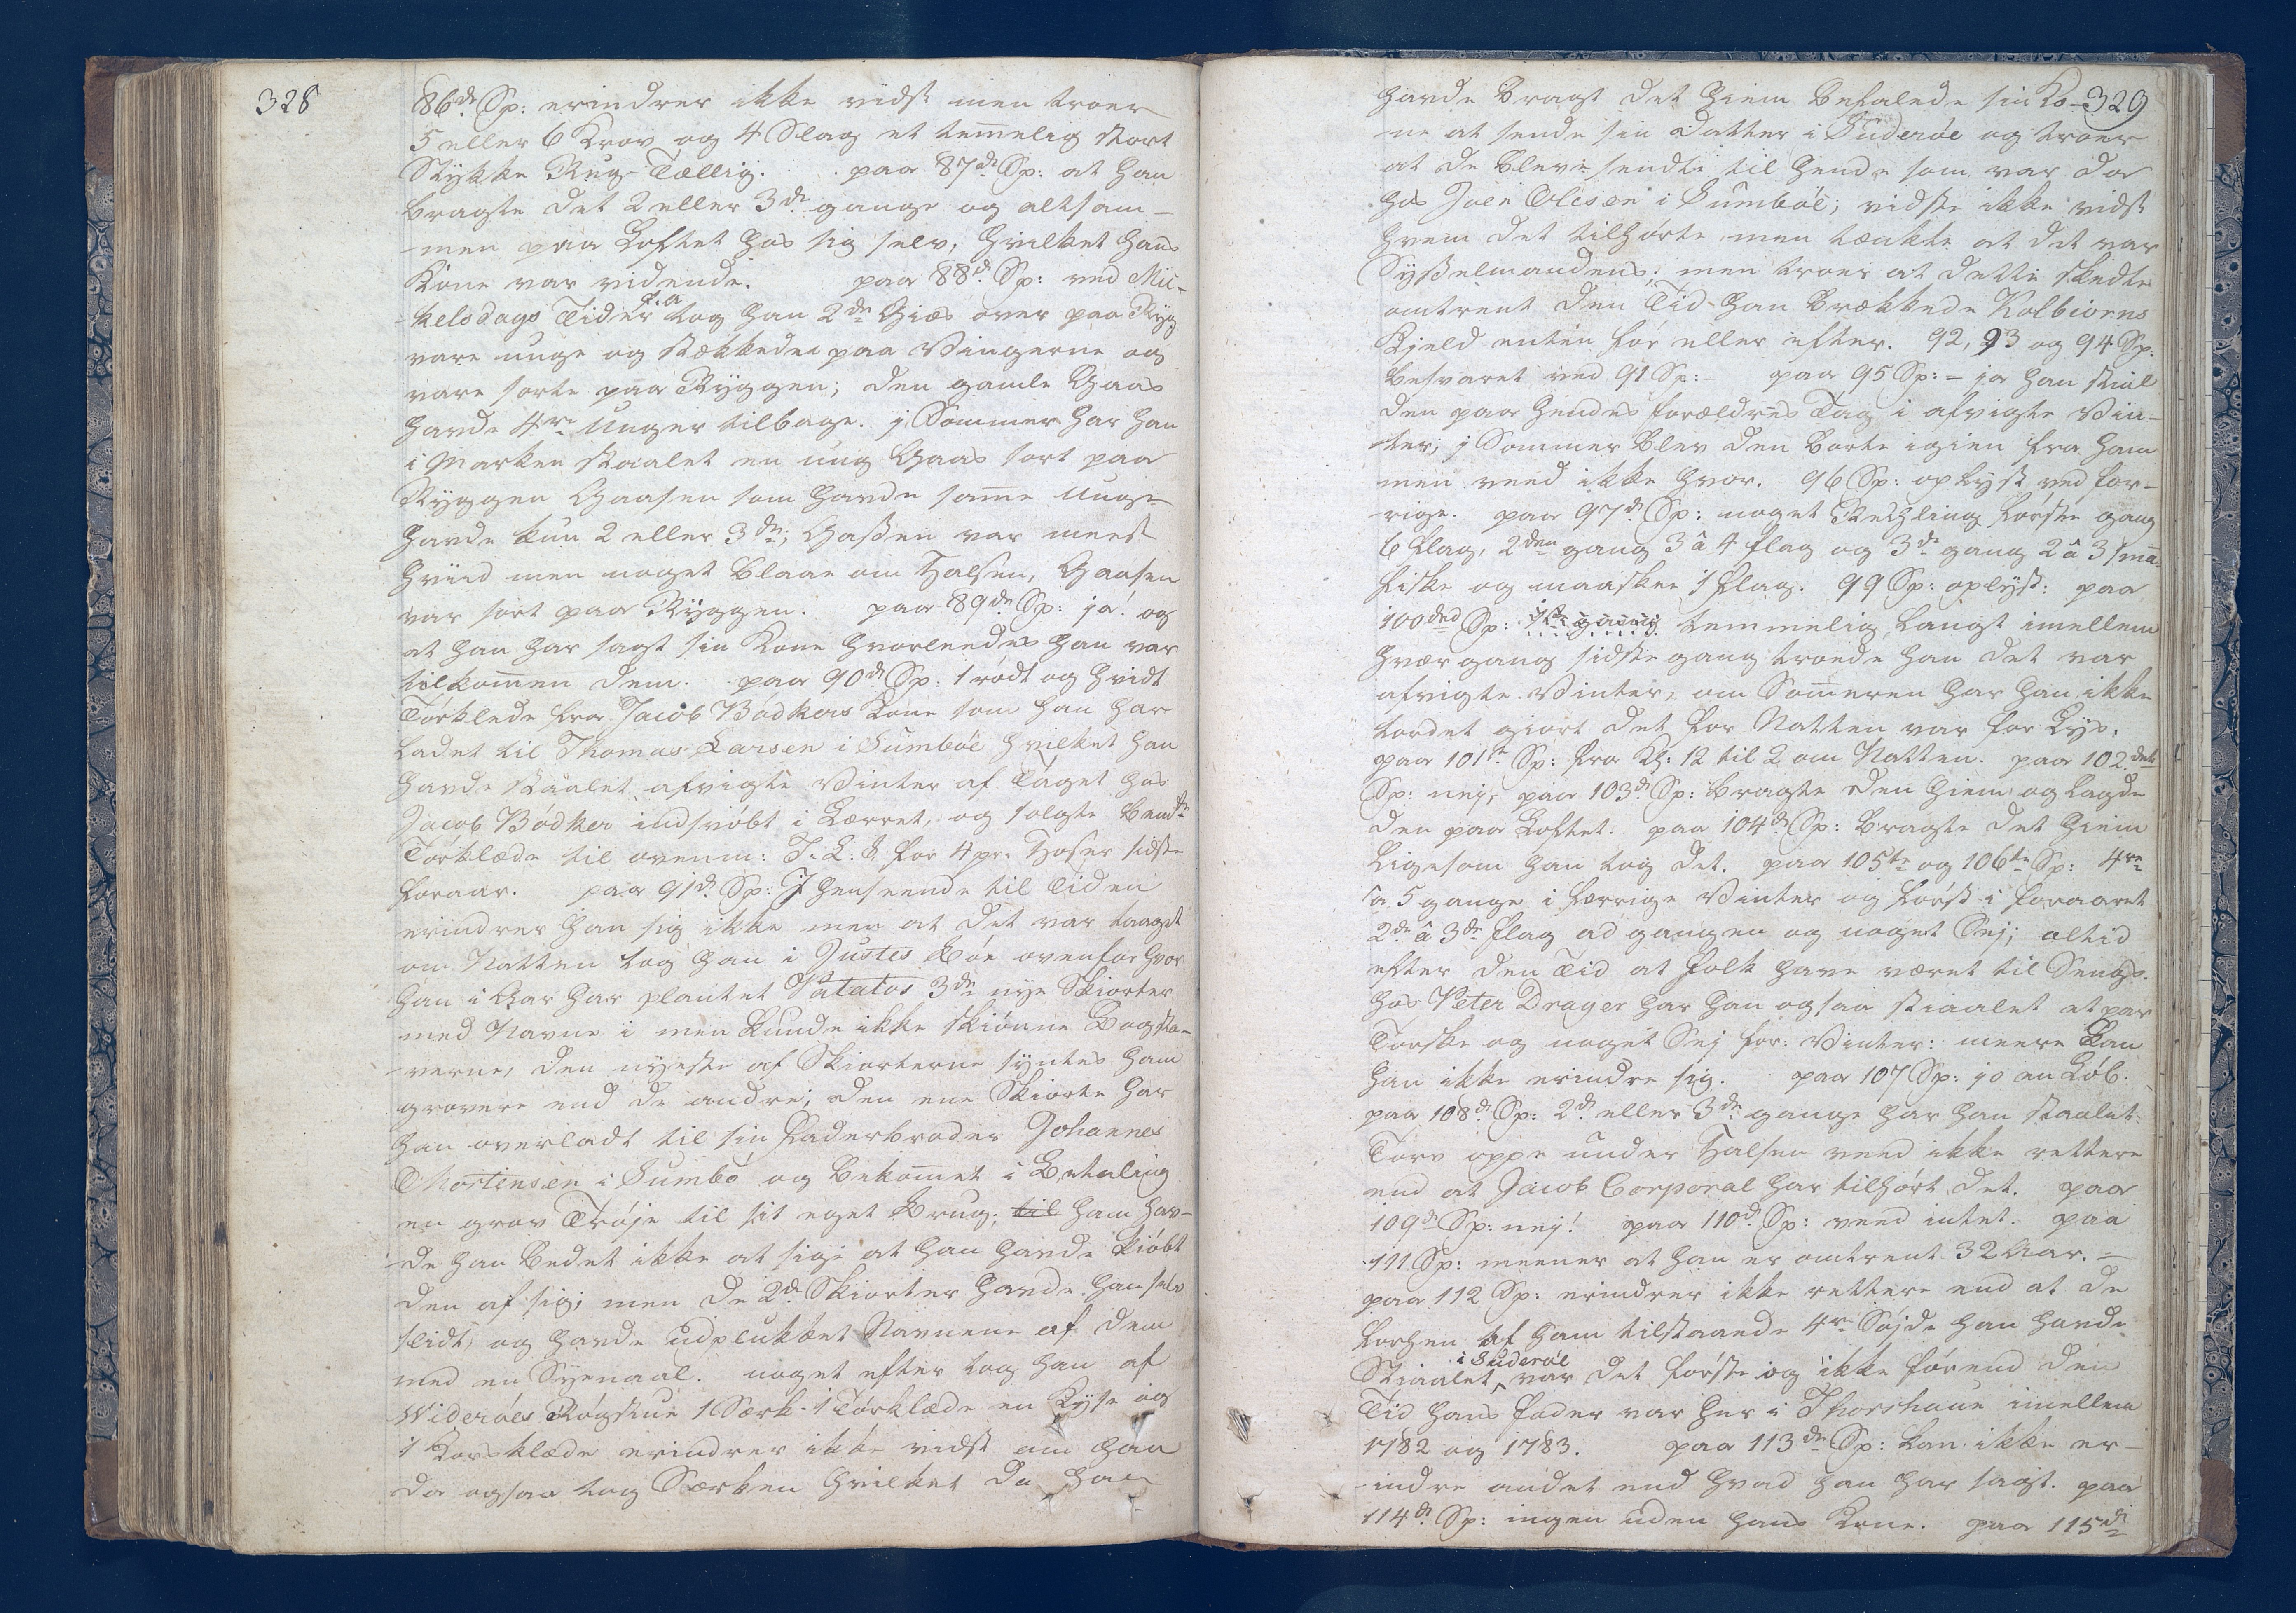 328
86de Sp: erindrer ikke vidst men troer
5 eller 6 Krov og 4 Slag et temmelig stort
Stykke Ryg-Tællig. paa 87de Sp: at han
bragte det 2 eller 3de gange og altsam-
-men paa Loftet hos sig selv, hvilket hans
Kone var vidende. paa 88de Sp: ved Mic-
kelsdags Tider tog han 2de Giæs over paa Ryg
vare unge og stækkede paa Vingerne og
vare sorte paa Ryggen; den gamle Gaas
havde 4re Unger tilbage. j Sommer har han
i Marken staalet en ung Gaas sort paa
Ryggen Gaasen som havde samme Unge
havde kun 2 eller 3de; Gassen var meest
hviid men noget blaae om Halsen, Gaasen
var sort paa Ryggen. paa 89de Sp: ja! og
at han har sagt sin Kone hvorleedes han var
tilkommen dem. paa 90de Sp: 1 rødt og hvidt
Tørklede fra Jacob Bødkers Kone som han har
ladet til Thomas Larsen i Sumbøe hvilket han
havde staalet afvigte Vinter af Taget hos
Jacob Bødker indsvøbt i Lærret, og solgte bemte
Tørklæde til ovenm: T. L: S. for 4 pr. Hoser sidste
foraar. paa 91de Sp: J henseende til Tiden
erindrer han sig ikke men at det var taaget
om Natten tog han i Justes Bøe ovenfor hvor
han i Aar har plantet Patatos 3de nye Skiorter
med Navne i men kunde ikke skiønne Bogsta-
-verne, den nyeste af Skiorterne syntes ham
grovere end de andre; den ene Skiorte har
han overladt til sin Faderbroder Johannes
Mortensen i Sumbø og bekommet i Betaling
en grov Trøje til sit eget Brug; til ham hav-
-de han bedet ikke at sige at han havde kiøbt
den af sig; men de 2de Skiorter havde han selv
slidt, og havde udplukket Navnene af dem
med en Syenaal. noget efter tog han af
Widerøes Røgstue 1 Særk 1 Tørklæde en Kyse og
1 Korsklæde erindrer ikke vidst om han
da ogsaa tog Særken hvilket da han
329
havde bragt det hiem befalede sin Ko-
-ne at sende sin Datter i Suderøe og troer
at de bleve sendte til hende som var da
hos Joen Olesen i Sumbøe; vidste ikke vidst
hvem det tilhørte men tænkte at det var
Sysselmandens; men troer at dette skedte
omtrent den Tid han brækkede Kolbiørns
Kjeld enten før eller efter. 92, 93 og 94 Sp.
besvaret ved 91 Sp:- paa 95 Sp: - ja han stial
den paa hendes forældres Tag i afvigte Vin-
-ter; j Sommer blev den borte igien fra ham
men veed ikke hvor. 96 Sp: oplyst ved for-
-rige. paa 97de Sp: noget Rechling første gang
6 flag, 2den gang 3 â 4 flag og 3de gang 2 â 3 smaa
fiske og maaskee 1 flag. 99 Sp: oplyst: paa
100ded Sp: 1ste gang temmelig langt imellem
hvær gang sidste gang troede han det var
afvigte Vinter, om Sommeren har han ikke
tordet giort det for Natten var for Lys.
paa 101te Sp: fra Kl: 12 til 2 om Natten. paa 102dede
Sp: nej, paa 103de Sp: bragte den hiem og lagde
den paa Loftet. paa 104de Sp: bragte det hiem
ligesom han tog det. paa 105te og 106te Sp: 4re
a 5 gange i færrige Vinter og først i foraaret
2de â 3de flag ad gangen og noget Sej; altid
efter den Tid at folk have været til Sengs.
hos Peter Drager har han ogsaa stiaalet et par
Torske og noget Sej for: Vinter: meere kan
han ikke erindre sig. paa 107 Sp: jo en Løb.
paa 108de Sp: 2de eller 3de gange har han staalet
Tørv oppe under Halsen veed ikke rettere
end at Jacob Corporal har tilhørt det. paa
109de Sp: nej! paa 110de Sp: veed intet. paa
111 Sp: meener at han er omtrent 32 Aar. -
paa 112 Sp: erindrer ikke rettere end at de
forhen af ham tilstaaede 4re Søjde han havde
Stiaalet i Suderøe var det første og ikke førend den
Tid hans fader var her i Thorshavn imellem
1782 og 1783. paa 113de Sp: kan ikke er-
-indre andet end hvad han har sagt. paa
114de Sp: ingen uden hans Kone. paa 115de